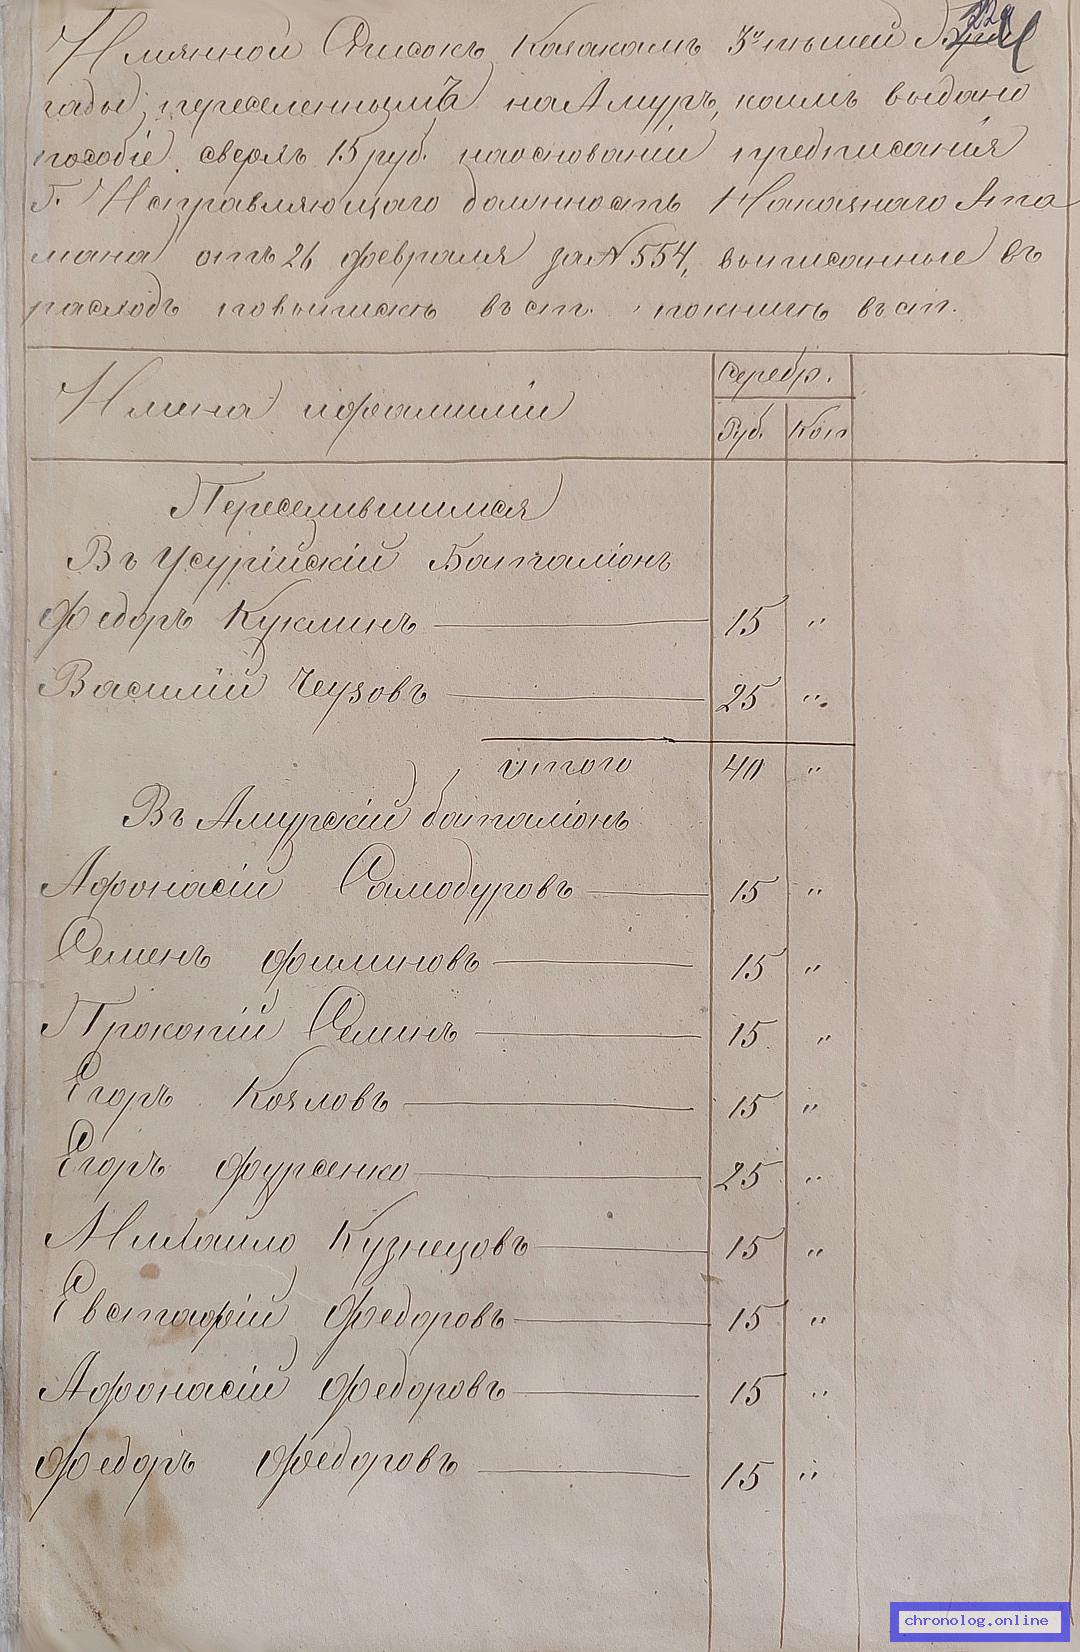 Имянной Списокъ Казакамъ 3й пѣшей Бри
гады, переселеннымъ на Амуръ, коимъ выдано
пособіе сверхъ 15 руб. на основаніи предписанія
Г. Исправляющаго должность Наказнаго Ата
мана отъ 26 февраля за № 554, выписанные въ
расходъ по выпискѣ въ ст. по книгѣ въ ст.
Имена и фамиліи
Серебр.
Руб. Коп
Переселившимся
Въ Усурійскій Баталіонъ
Федоръ Куклинъ 15 "
Василій Чеузовъ 25 "
итого 40 "
Въ Амурскій баталіонъ
Афонасій Самодуровъ 15 "
Семенъ Филиновъ 15 "
Прокопій Семинъ 15 "
Егоръ Козловъ 15 "
Егоръ Фурсенко 25 "
Михайло Кузнецовъ 15 "
Евстафій Федоровъ 15 "
Афонасій Федоровъ 15 "
Федоръ Федоровъ 15 "
chronolog.online